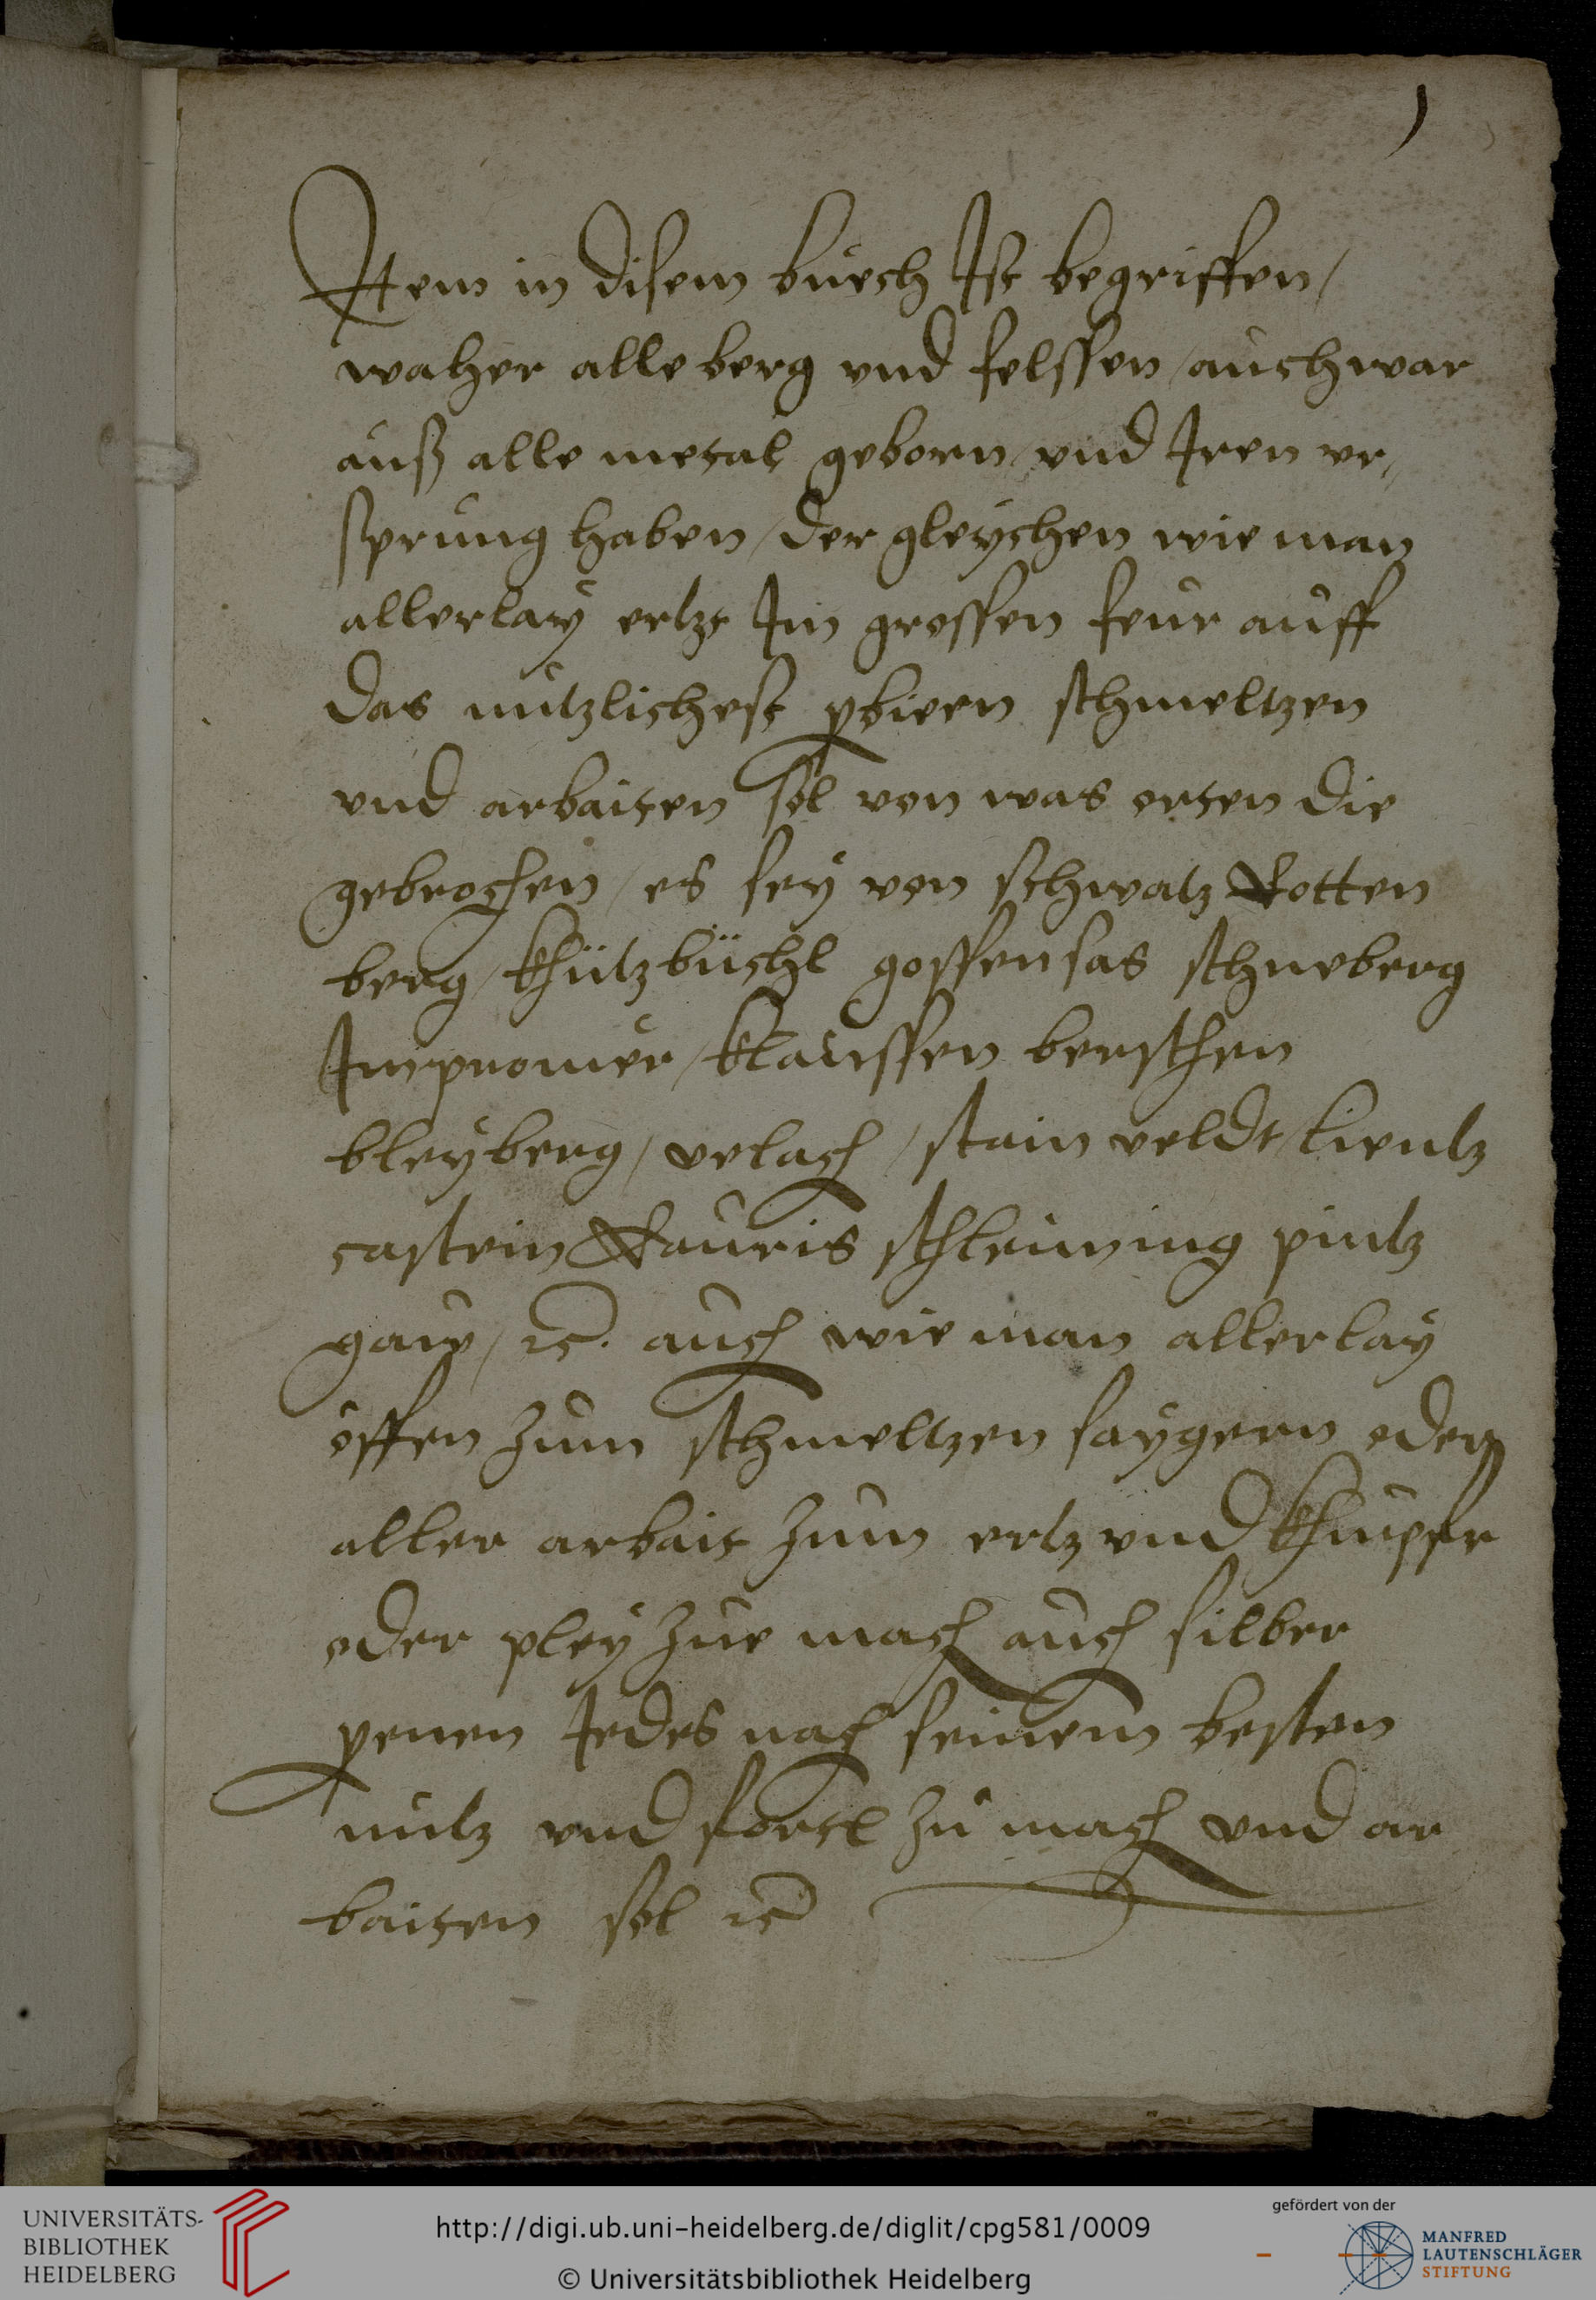 1
Item in disem buech Ist begriffen /
waher alle berg vnd felssen / auch war
auß alle metal geborn / vnd Iren vr,,
sprung haben / der gleychen wie man
allerlay ertzt Im grossen feur auff
das nutzlichest pbiern schmeltzen
vnd arbaiten sol von was orten die
gebrochen / es sey von schwatz Rotten
berg / khützbüchl gossensas schneberg
Impromer / klaussen berschen
bleyberg / velach / stainveldt / lientz
castein Rauris schleiming pintz
gaue / rc. auch wie man allerlay
öffen zum schmeltzen saygern oder
aller arbait zum ertz vnd khupfr
oder pley zue mach auch silber
prenen Jedes nach seinem besten
nutz vnd fortl zu mach vnd ar
baiten sol rc
UNIVERSITÄTS-
BIBLIOTHEK
HEIDELBERG
http://digi.ub.uni-heidelberg.de/diglit/cpg581/0009
© Universitätsbibliothek Heidelberg
gefördert von der
MANFRED
LAUTENSCHLÄGER
STIFTUNG